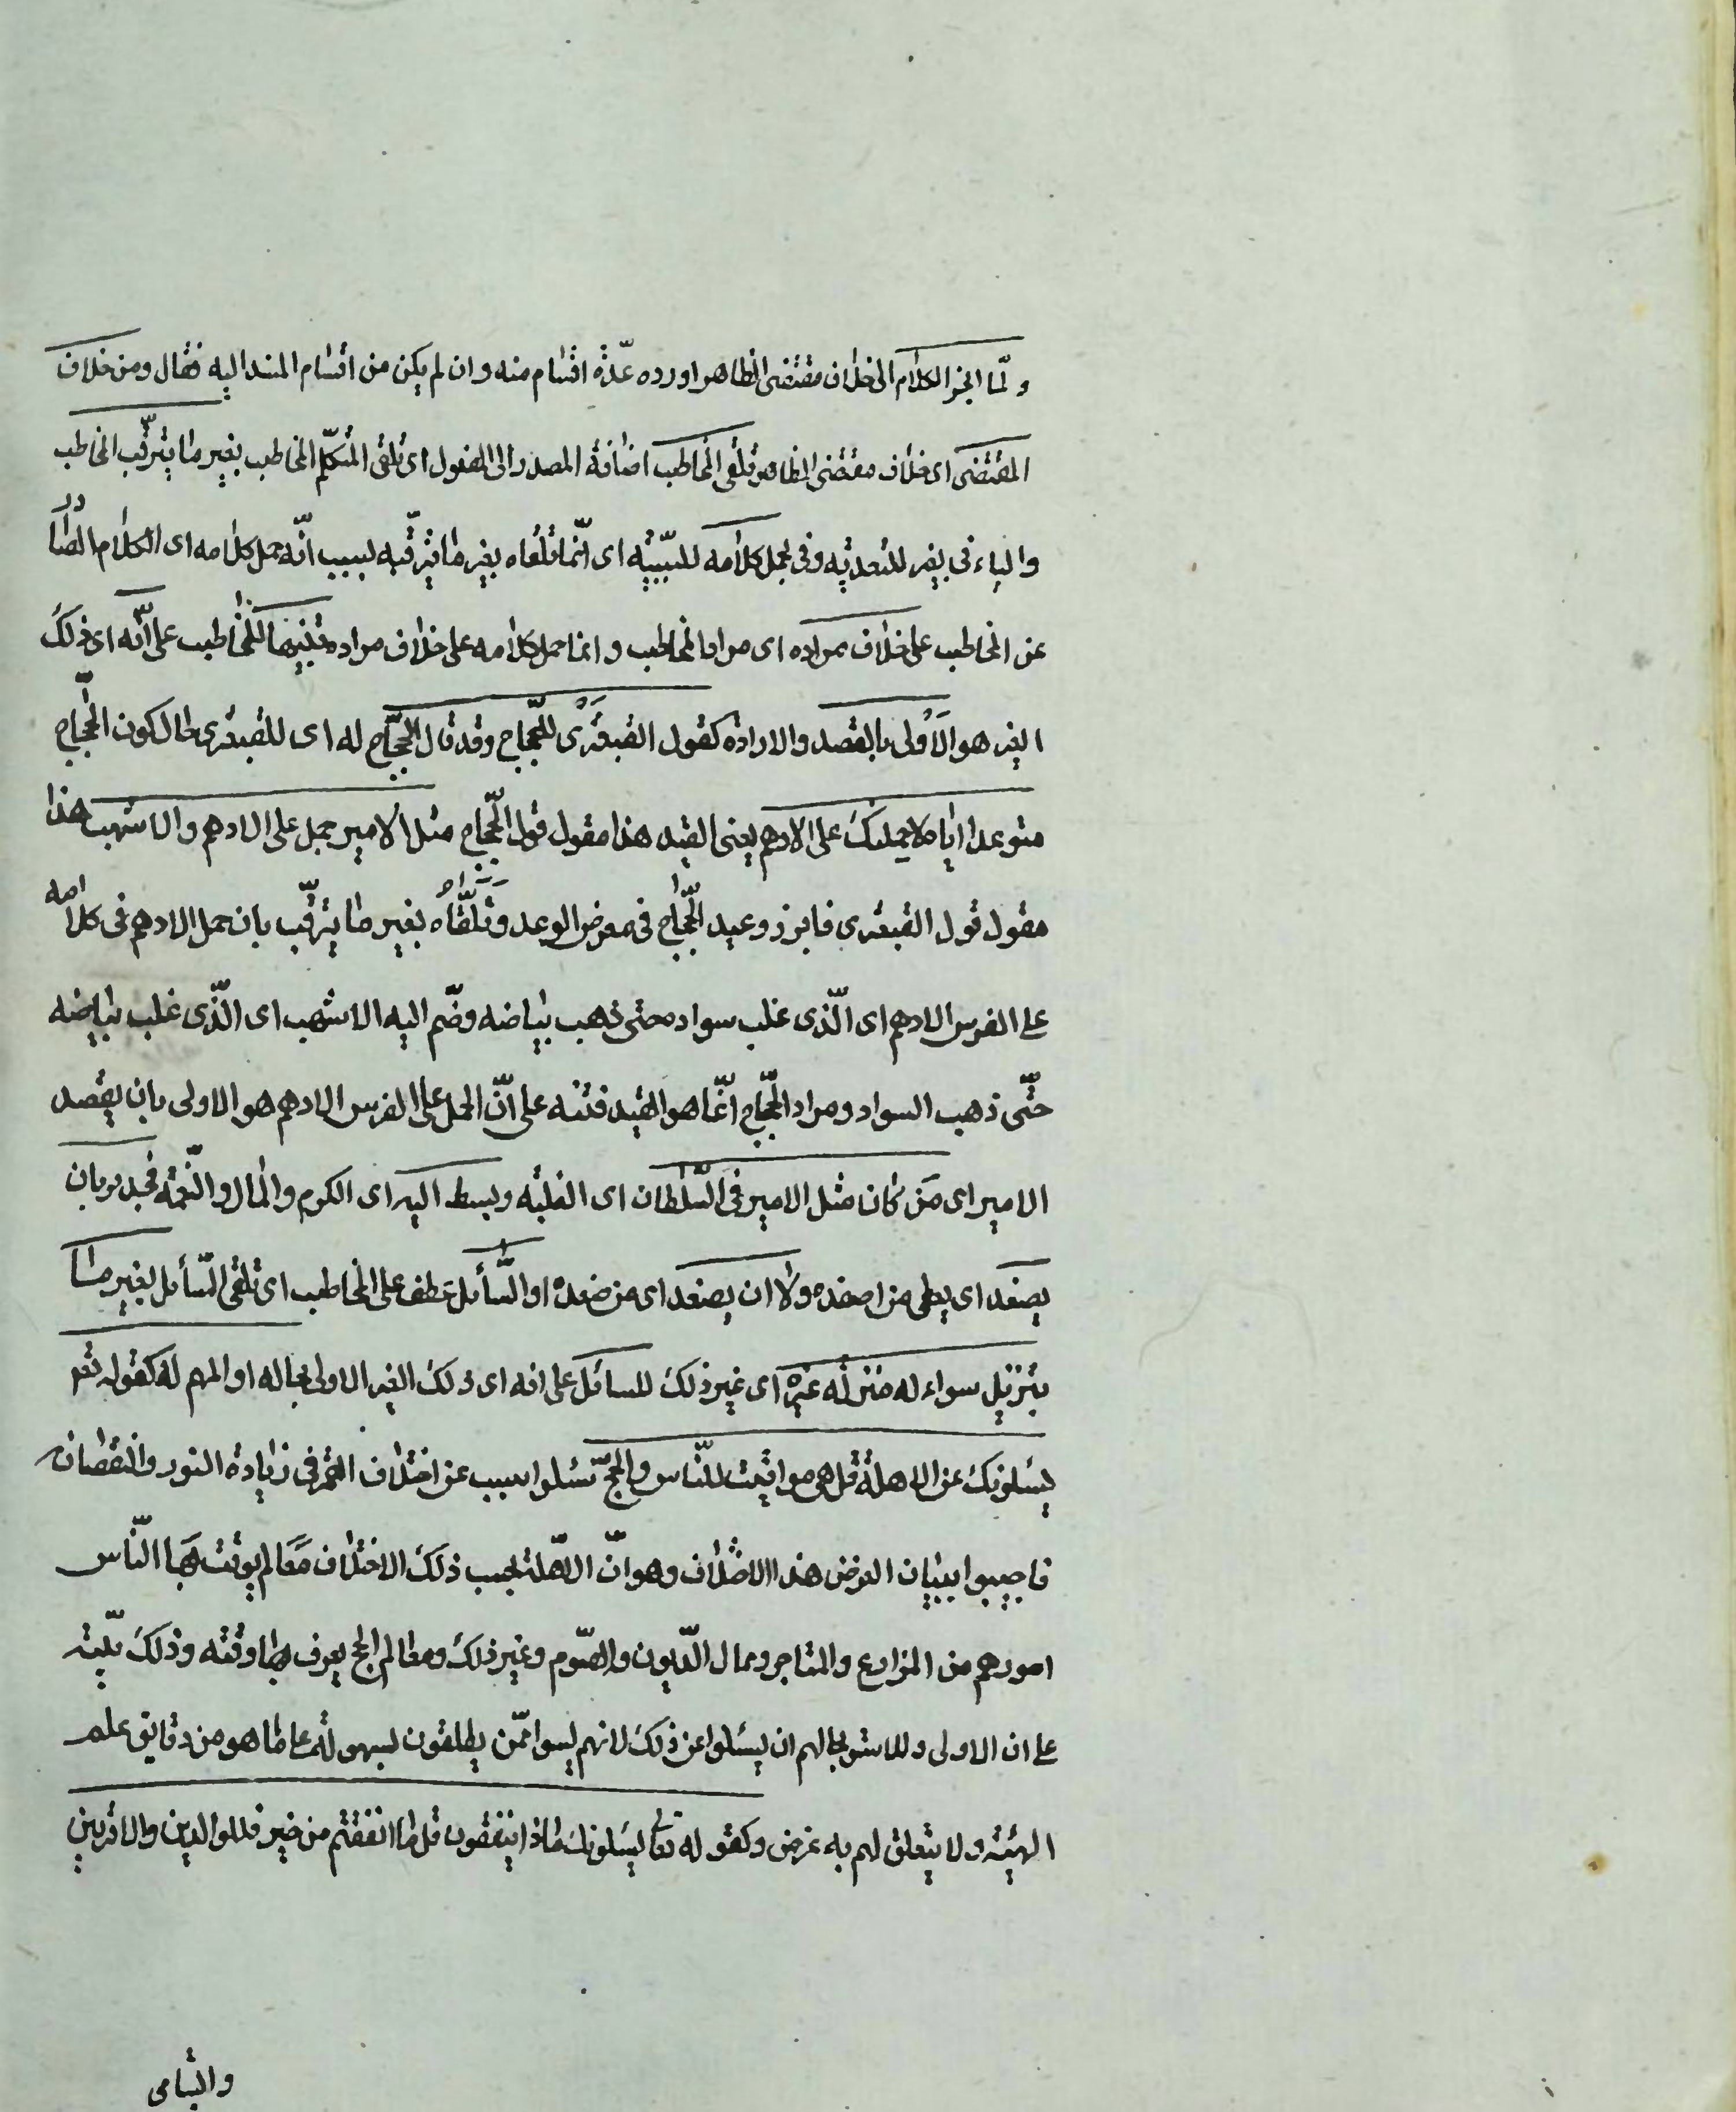 ولمّا انجز الكلام الى خلاف مقتضى الظاهر اورده عدّة اقسام منه وان لم يكن من اقسام المسند اليه فقال ومن خلاف
المقتضى اى خلاف مقتضى الظاهر تلقى المخاطب اضافة المصدر الى المفعول اى تلقى المتكلّم المخاطب بغير ما يترقّب المخاطب
والباء فى بغير للتعدية وفى بحمل كلامه للسّببيّة اى انّما تلقاه بغير ما يترقّبه لسبب انّه حمل كلامه اى الكلام الصّادر
عن المخاطب على خلاف مراده اى مراد المخاطب وانما حمل كلامه على خلاف مراده تنبيها للمخاطب على انّه اى ذلك
الغير هو الاَولى بالقصد والارادة كقول القبعثرى للحجّاج وقد قال الحجّاج له اى للقبعثرى حال كون الحجّاج
متوعدا ايّاه لاحملنك على الادهم يعنى القيد هذا مقول قول الحجّاج مثل الامير حمل على الادهم والاشهب هذا
مقول قول القبعثرى فابرز وعيد الحجّاج فى معرض الوعد وتَلَقَّاهُ بغير ما يترقّب بان حمل الادهم فى كلامه
على الفرس الادهم اى الّذى غلب سواده حتى ذهب بياضه وضّم اليه الاشهب اى الّذى غلب بياضه
حتّى ذهب السواد ومراد الحجّاج انّما هو القيد فتنبه على انّ الحمل على الفرس الادهم هو الاولى بان يقصد
الامير اى مَن كان مثل الامير فى السّلطان اى الغلبة وبسط اليد اى الكرم والمال والنّعمة فجدير بان
يصفد اى يعطى من اصفده ولا ان يصفد اى من صفده او السّأيل عطف على المخاطب اى تلقى السّأيل بغير ما
بتنزيل سواءله منزلة غيره اى غير ذلك للسائل على انه اى ذلك الغير الاولى بحاله او المهم له كقوله تعـ
يسئلونك عن الاهلة قل هى مواقيت للنّاس والحجّ سئلوا بسبب عن اختلاف القمر فى زيادة النور والنقصان
فاجيبوا ببيان الغرض هذا الاختلاف وهو انّ الاهّلة بحسب ذلك الاختلاف مَعَالم يوقت بها النّاس
امورهم من المزارع والمتاجر ومحال الدّيون والصّوم وغير ذلك ومعالم الحج يعرف بها وقته وذلك
على ان الاولى وبحالهم ان يسئلوا عن ذلك لانهم ليسوا ممّن يطلعون بسهولة على ما هو من دقايق علم
الهيئة ولا يتعلق لهم به غرض وكقوله تعا يسئلونك ماذا ينفقون قل ما انفقتم من خير فللوالدين والاقربين
واليتامى